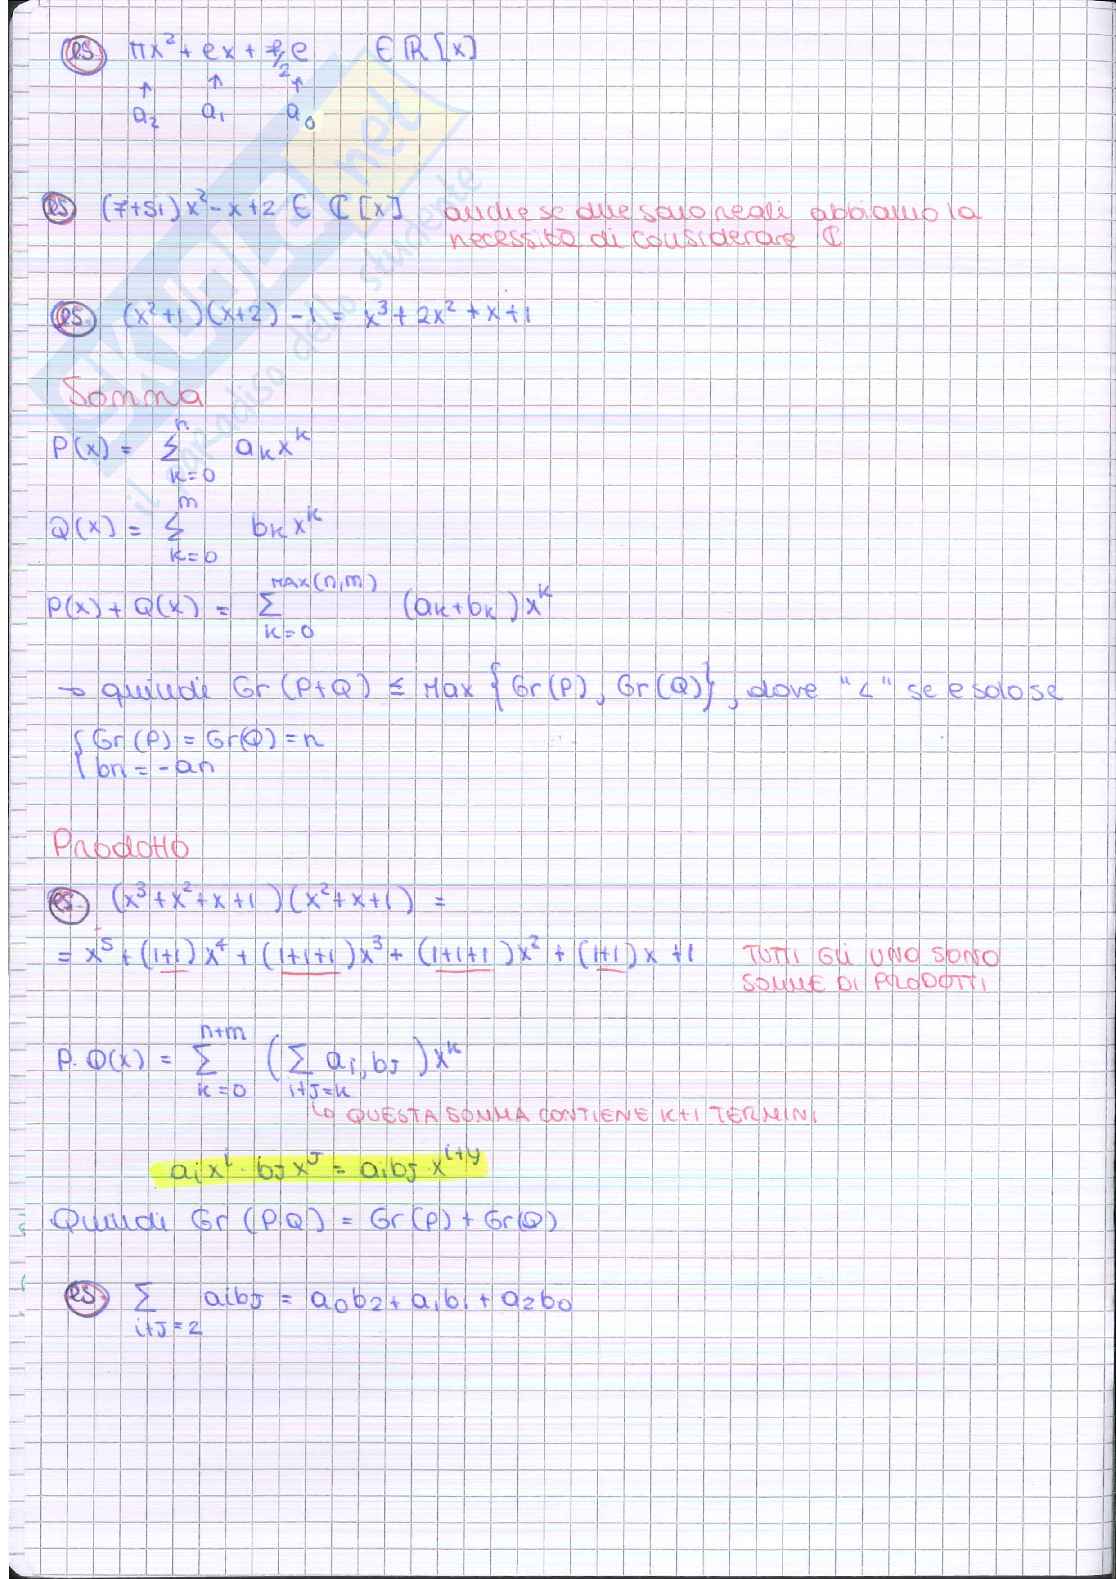 es πx² + ex + π/2 e ∈ ℝ[x]
↑ ↑ ↑
a₂ a₁ a₀
es (7+5i)x² - x + 2 ∈ ℂ[x] anche se due sono reali abbiamo la
necessità di considerare ℂ
es. (x²+1)(x+2) - 1 = x³ + 2x² + x + 1
Somma
P(x) = Σ_{k=0}^{n} aₖxᵏ
Q(x) = Σ_{k=0}^{m} bₖxᵏ
P(x) + Q(x) = Σ_{k=0}^{MAX(n,m)} (aₖ+bₖ)xᵏ
→ quindi Gr(P+Q) ≤ Max {Gr(P), Gr(Q)}, dove "<" se e solo se
{ Gr(P) = Gr(Q) = n
bn = -an
Prodotto
es. (x³+x²+x+1)(x²+x+1) =
= x⁵ + (1+1)x⁴ + (1+1+1)x³ + (1+1+1)x² + (1+1)x + 1 TUTTI GLI UNO SONO
SOMME DI PRODOTTI
P.Q(x) = Σ_{k=0}^{n+m} (Σ_{i+J=k} ai, bJ) xᵏ
↳ QUESTA SOMMA CONTIENE K+1 TERMINI
aᵢxⁱ · bJ xᴶ = aᵢbJ · x^{i+y}
Quindi Gr(P.Q) = Gr(P) + Gr(Q)
es. Σ_{i+J=2} aibJ = a₀b₂ + a₁b₁ + a₂b₀
SKUOLA.net
il paradiso dello studente